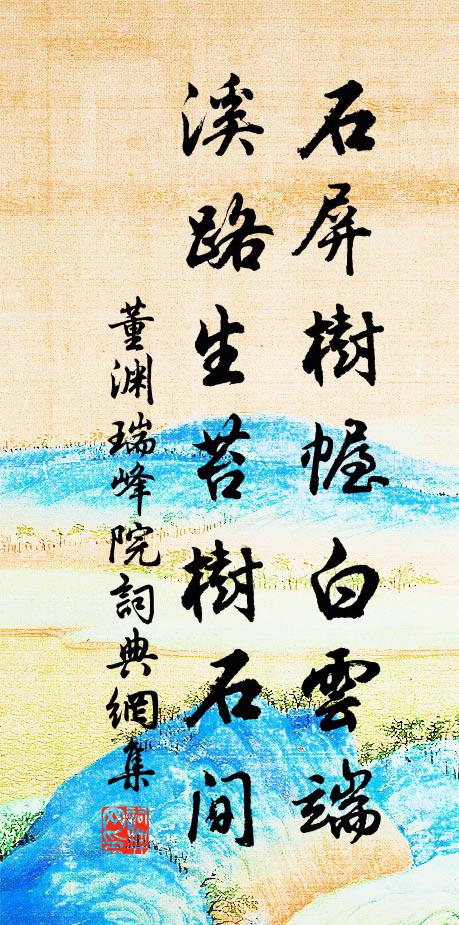 石屏樹幄白雲端
溪路生苔樹石間
董渊瑞峰院詞典網集